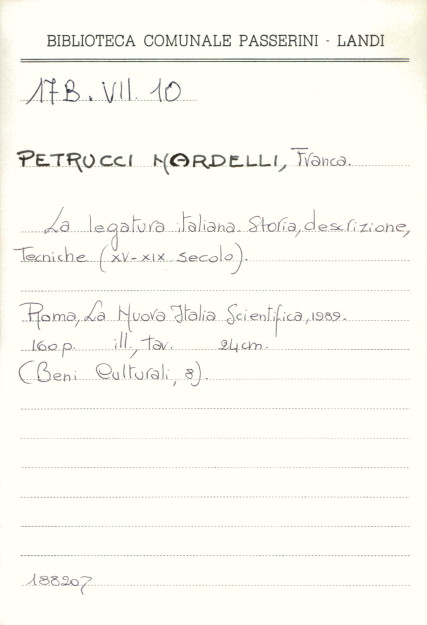 BIBLIOTECA COMUNALE PASSERINI - LANDI
17B.VII.10
PETRUCCI NARDELLI, Franca.
La legatura italiana. Storia, descrizione,
Tecniche (XV-XIX secolo).
Roma, La Nuova Italia Scientifica, 1989.
160 p. ill., tav. 24 cm.
(Beni Culturali, 8).
188207